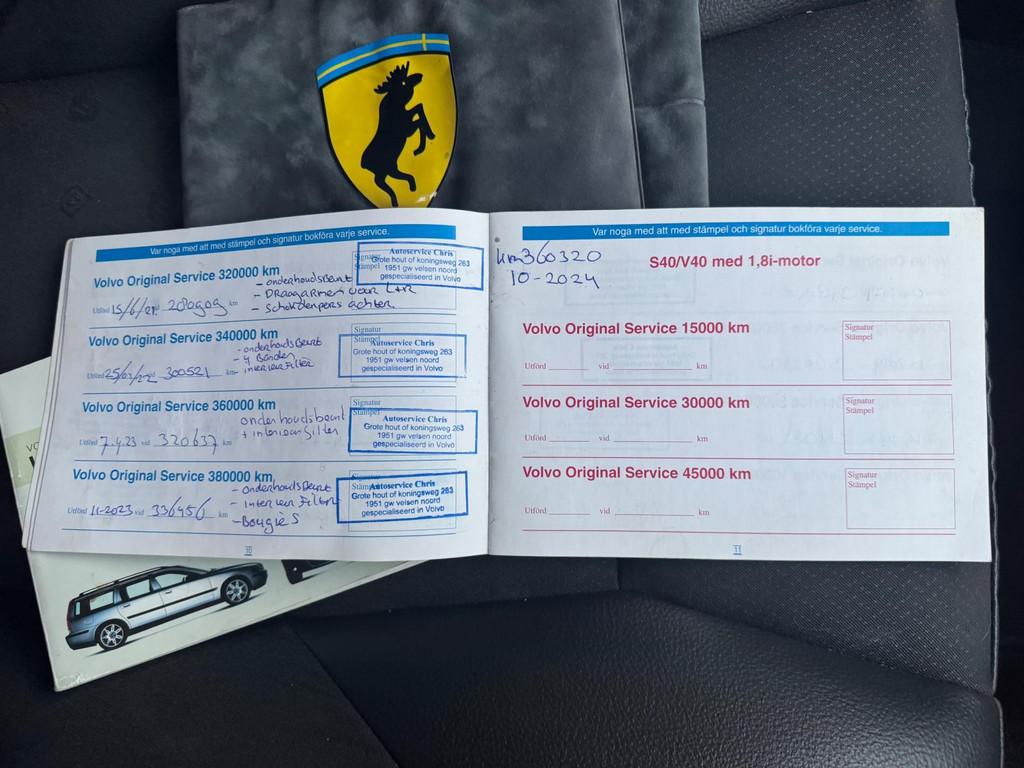 Var noga med att med stämpel och signatur bokföra varje service.
Volvo Original Service 320000 km
- onderhoudsbeurt
- Draagarmen voor L+R
- Schokdempers achter
Utförd 15/6/21 vid 280909 km
Signatur
Stämpel
Autoservice Chris
Grote hout of koningsweg 263
1951 gw velsen noord
gespecialiseerd in Volvo
Volvo Original Service 340000 km
- onderhoudsbeurt
- 4 Banden
- interieur Filter
Utförd 25/02/22 300521 km
Signatur
Stämpel
Autoservice Chris
Grote hout of koningsweg 263
1951 gw velsen noord
gespecialiseerd in Volvo
Volvo Original Service 360000 km
onderhoudsbeurt
+ interieurfilter
Utförd 7.4.23 vid 320637 km
Autoservice Chris
Grote hout of koningsweg 263
1951 gw velsen noord
gespecialiseerd in Volvo
Volvo Original Service 380000 km
- onderhoudsBeurt
- interieur Filter
- Bougies
Utförd 11-2023 vid 336456 km
Stämpel
Autoservice Chris
Grote hout of koningsweg 263
1951 gw velsen noord
gespecialiseerd in Volvo
10
Var noga med att med stämpel och signatur bokföra varje service.
km 360320
10-2024
S40/V40 med 1,8i-motor
Volvo Original Service 15000 km
Signatur
Stämpel
Utförd vid km
Volvo Original Service 30000 km
Signatur
Stämpel
Utförd vid km
Volvo Original Service 45000 km
Signatur
Stämpel
Utförd vid km
11